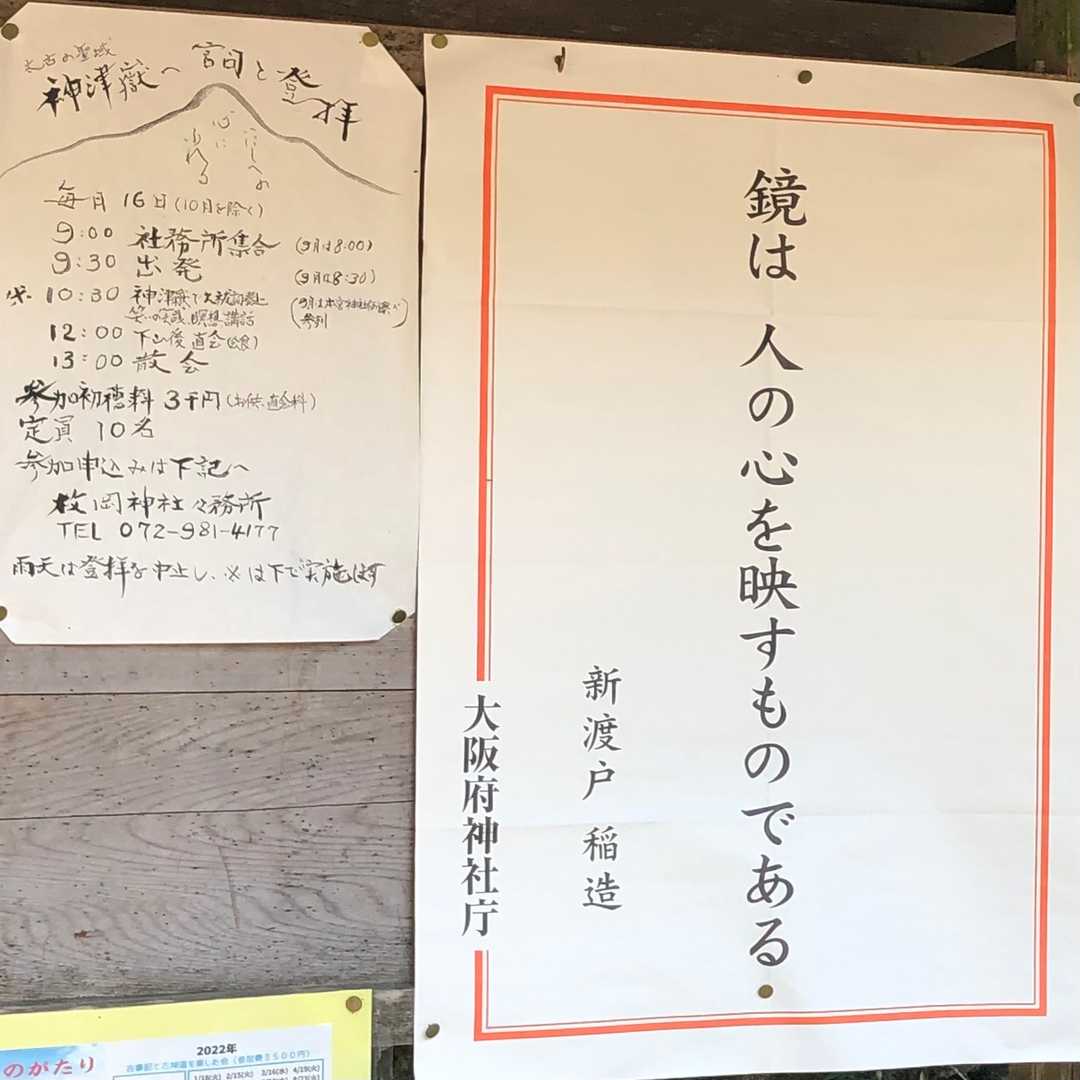 太古の聖域
神津嶽へ 宮司と登拝
いにしへの
心に
ふれる
毎月 16日(10月を除く)
9:00 社務所集合 (9月は8:00)
9:30 出発 (9月は8:30)
※ 10:30 神津嶽で大祓詞
笑いの実践、瞑想講話
参列
12:00 下山後直会
13:00 散会
参加初穂料 3千円(お供、直会料)
定員 10名
参加申込みは下記へ
枚岡神社々務所
TEL 072-981-4177
雨天は登拝を中止し、※は下で実施します
鏡は 人の心を映すものである
新渡戸 稲造
大阪府神社庁
のがたり
2022年
(参加費3500円)
1/18(火) 2/15(火) 3/16(水) 4/19(火)